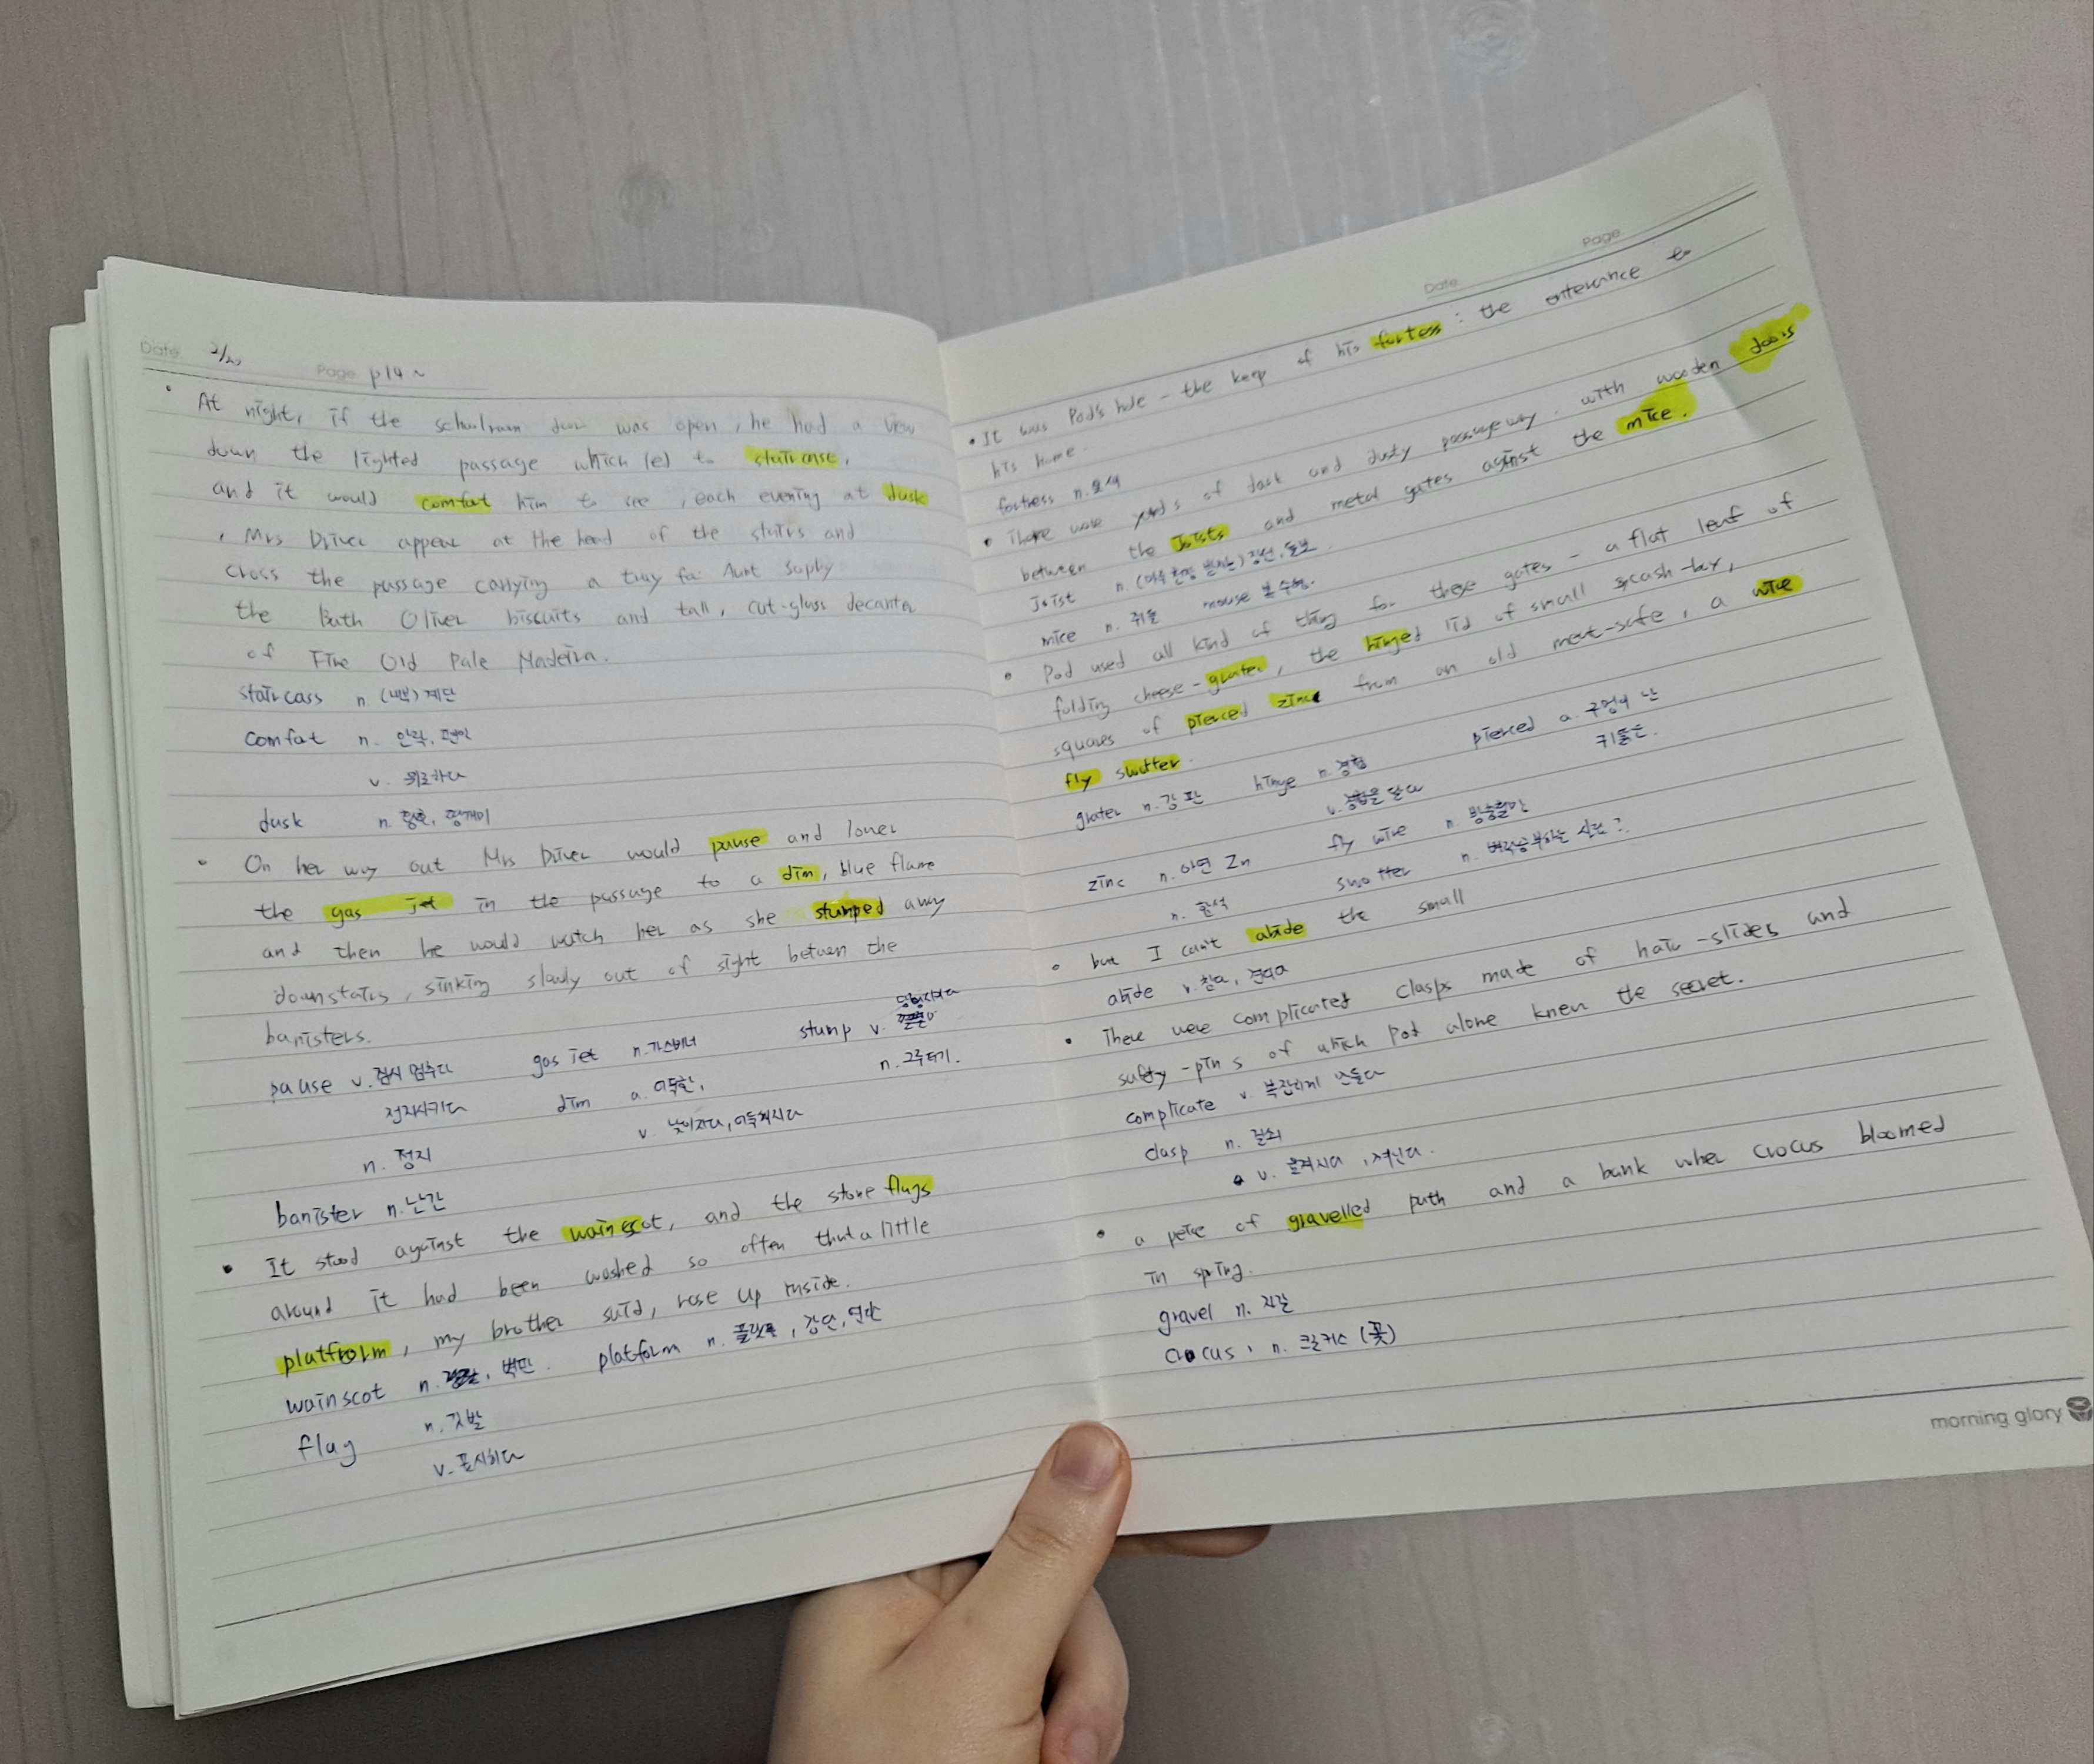 Date 2/20 Page p19 ~
• At night, if the schoolroom door was open, he had a view
down the lighted passage which led to staircase,
and it would comfort him to see, each evening at dusk
, Mrs Driver appear at the head of the stairs and
cross the passage carrying a tray for Aunt Sophy
the Bath Oliver biscuits and tall, cut-glass decanter
of Fine Old Pale Madeira.
staircass n. (내부) 계단
comfort n. 안락, 편안
v. 위로하다
dusk n. 황혼, 땅거미
• On her way out Mrs Driver would pause and lower
the gas jet in the passage to a dim, blue flame
and then he would watch her as she stumped away
downstairs, sinking slowly out of sight between the
banisters.
pause v. 잠시 멈추다 gas jet n. 가스버너 stump v.
정지시키다 dim a. 어두한, n. 그루터기.
n. 정지 v. 낮아지다, 어두워지다
banister n. 난간
• It stood against the wainscot, and the stone flags
around it had been washed so often that a little
platform, my brother said, rose up inside.
wainscot n. 벽판. platform n. 플랫폼, 강단, 연단
flag n. 깃발
v. 표시하다
Date Page
• It was Pod's hole - the keep of his fortess : the enterance to
his home.
fortress n. 요새
• There were yards of dark and dusty passageway. with wooden doors
between the Joists and metal gates against the mice.
Joist n. 장선, 들보
mice n. 쥐들 mouse 복수형.
• Pod used all kind of thing for these gates - a flat leaf of
folding cheese-grater, the hinged lid of small cash-box,
squares of pierced zinc from an old meat-safe, a wire
fly swotter.
grater n. 강판 hinge n. 경첩 pierced a. 구멍이 난
v. 경첩을 달다 귀뚫은.
zinc n. 아연 Zn fly wire n. 방충철망
n. 함석 swotter n. 벼락공부하는 사람?
• but I can't abide the small
abide v. 참다, 견디다
• There were complicated clasps made of hair-slides and
safty-pins of which Pod alone knew the secret.
complicate v. 복잡하게 만들다
clasp n. 걸쇠
v. 움켜쥐다, 껴안다.
• a peice of gravelled path and a bank wher crocus bloomed
in spring.
gravel n. 자갈
crocus, n. 크로커스 (꽃)
morning glory